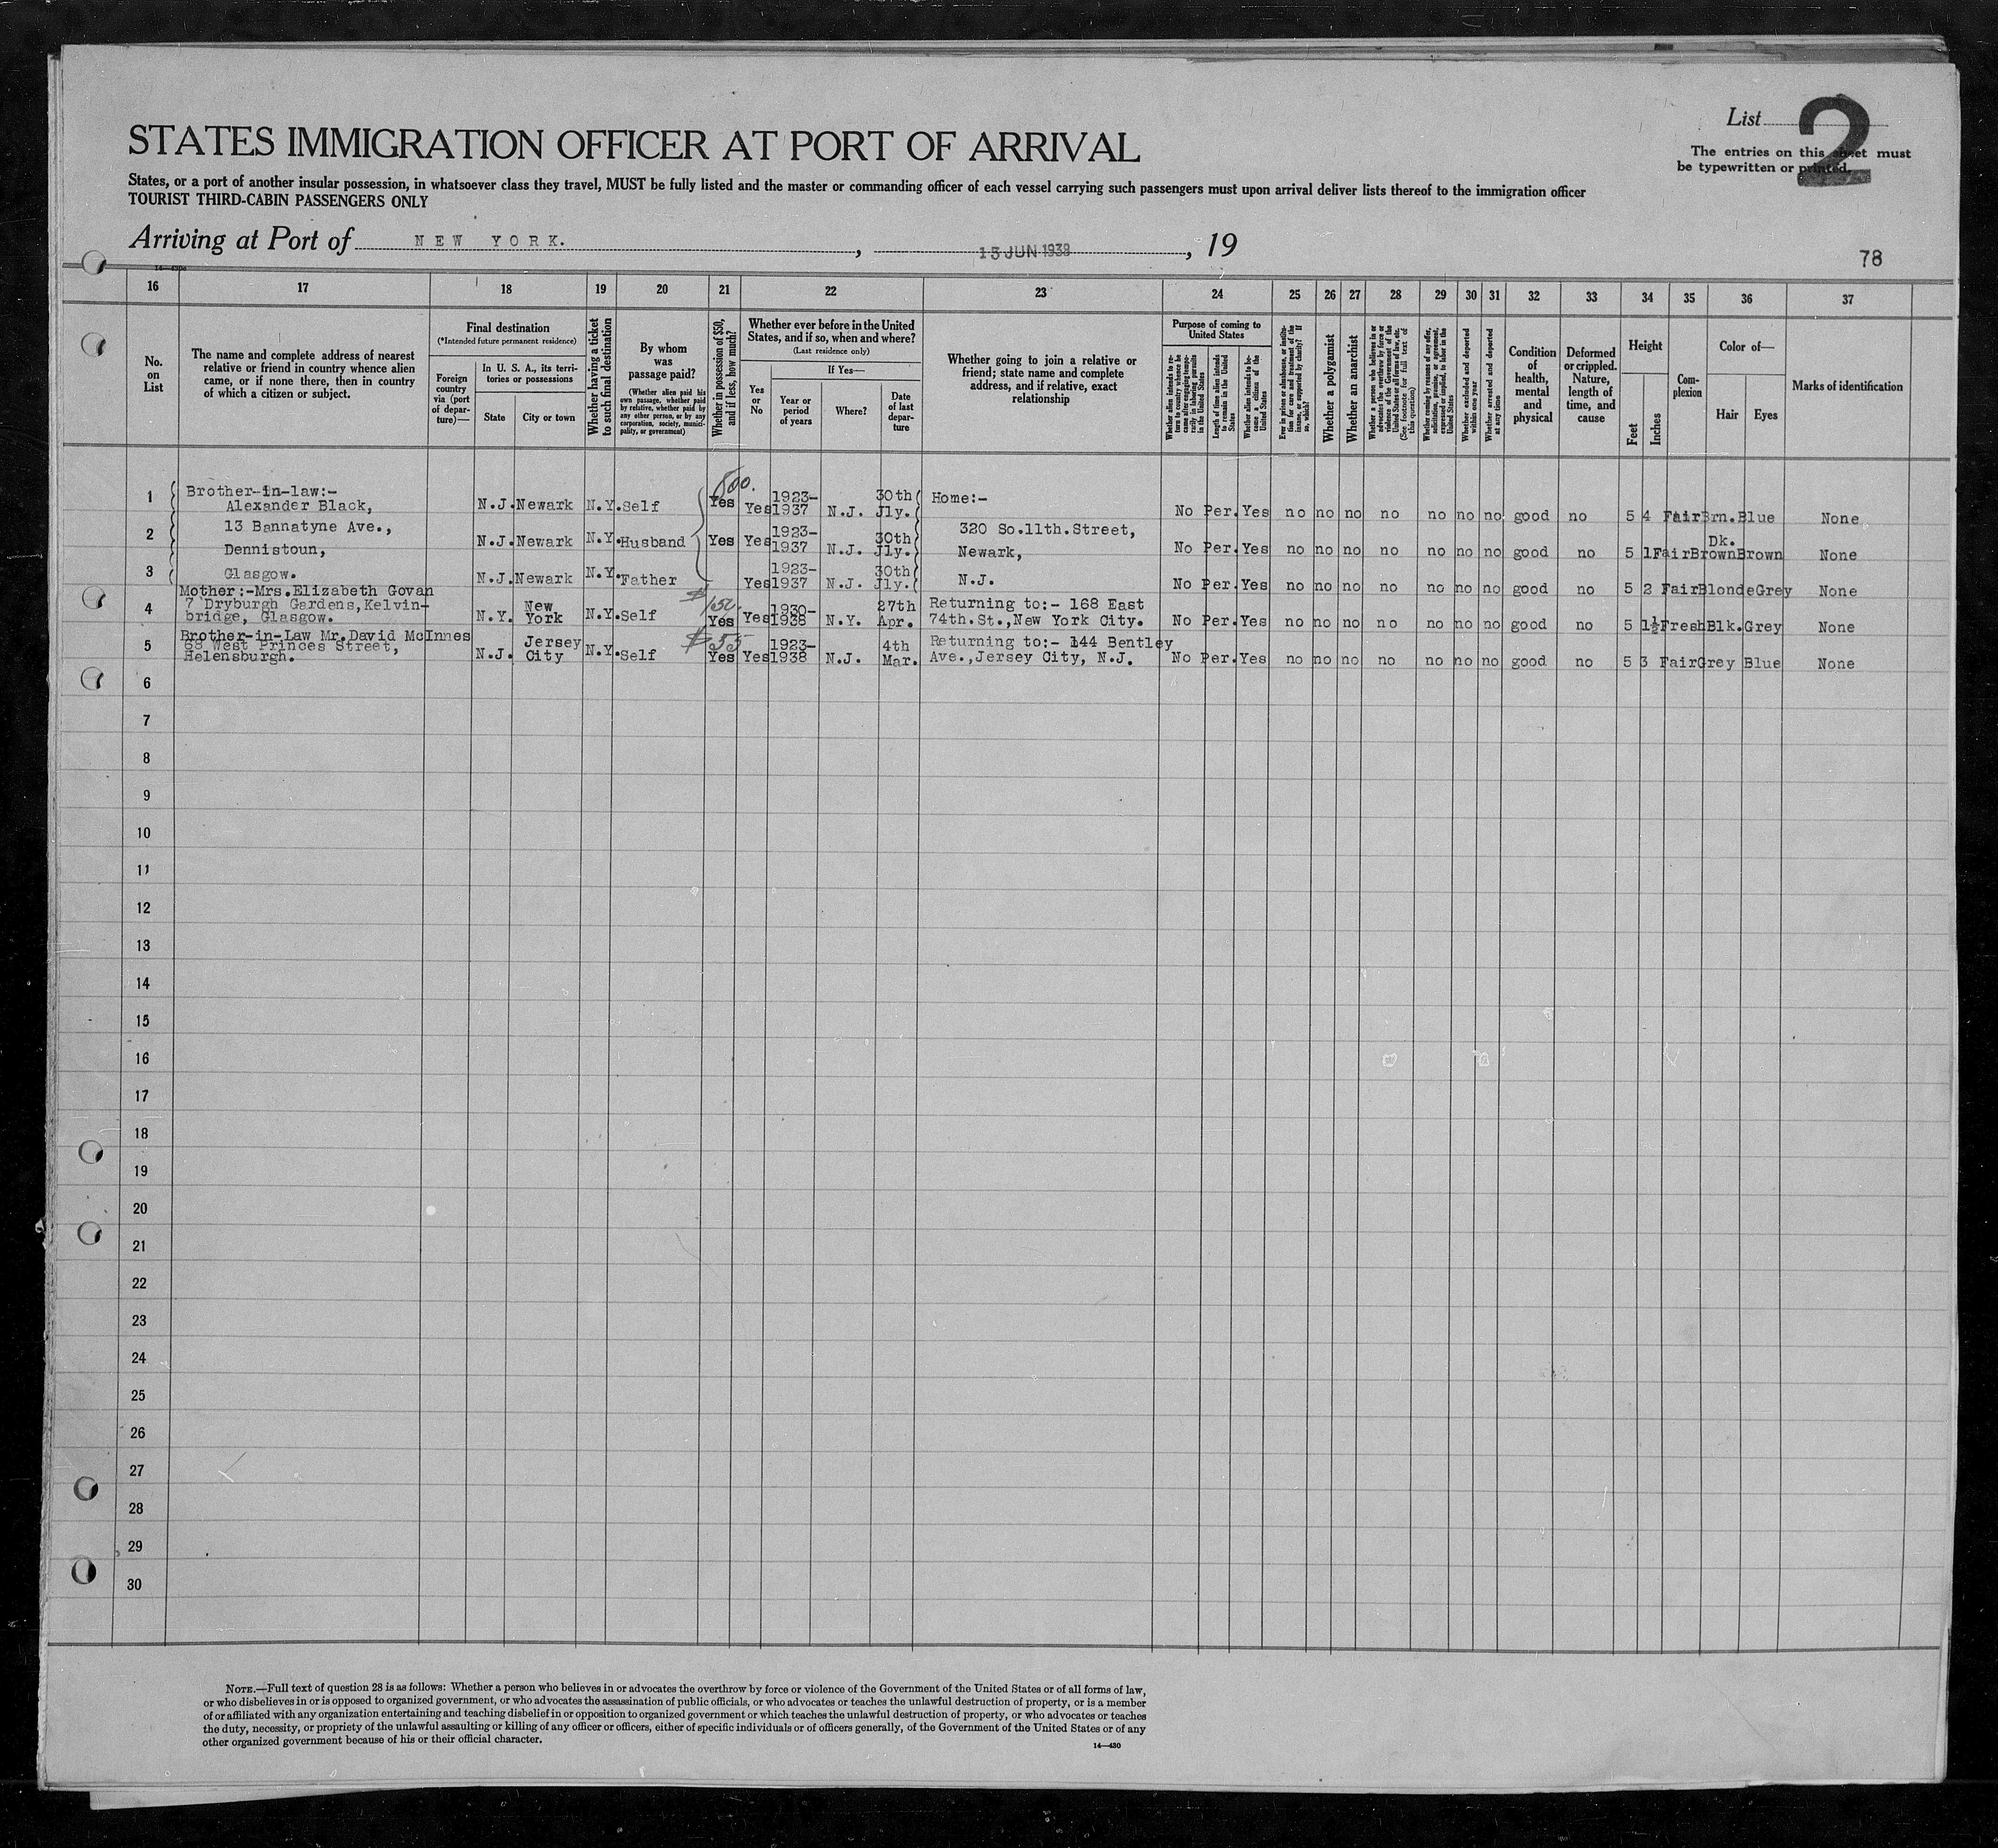 List 2
The entries on this sheet must
be typewritten or printed.
STATES IMMIGRATION OFFICER AT PORT OF ARRIVAL
States, or a port of another insular possession, in whatsoever class they travel, MUST be fully listed and the master or commanding officer of each vessel carrying such passengers must upon arrival deliver lists thereof to the immigration officer
TOURIST THIRD-CABIN PASSENGERS ONLY
Arriving at Port of NEW YORK. , 15 JUN 1938 , 19
78
16 17 18 19 20 21 22 23 24 25 26 27 28 29 30 31 32 33 34 35 36 37
No. on List
The name and complete address of nearest
relative or friend in country whence alien
came, or if none there, then in country
of which a citizen or subject.
Final destination
(*Intended future permanent residence)
Foreign country via (port of departure)—
In U. S. A., its territories or possessions
State
City or town
Whether having a ticket to such final destination
By whom was passage paid?
(Whether alien paid his own passage, whether paid by relative, whether paid by any other person, or by any corporation, society, municipality, or government)
Whether in possession of $50, and if less, how much?
Whether ever before in the United
States, and if so, when and where?
(Last residence only)
Yes or No
If Yes—
Year or period of years
Where?
Date of last departure
Whether going to join a relative or
friend; state name and complete
address, and if relative, exact
relationship
Purpose of coming to United States
Length of time alien intends to remain in the United States
Whether alien intends to become a citizen of the United States
Whether a polygamist
Whether an anarchist
Whether excluded and deported within one year
Whether arrested and deported at any time
Condition of health, mental and physical
Deformed or crippled. Nature, length of time, and cause
Height
Feet
Inches
Complexion
Color of—
Hair
Eyes
Marks of identification
1 Brother-in-law:- Alexander Black, N.J. Newark N.Y. Self Yes Yes 1923-1937 N.J. 30th Jly. Home:- No Per. Yes no no no no no no no good no 5 4 Fair Brn. Blue None
2 13 Bannatyne Ave., Dennistoun, N.J. Newark N.Y. Husband Yes Yes 1923-1937 N.J. 30th Jly. 320 So.11th.Street, Newark, No Per. Yes no no no no no no no good no 5 1 Fair Dk. Brown Brown None
3 Glasgow. N.J. Newark N.Y. Father Yes 1923-1937 N.J. 30th Jly. N.J. No Per. Yes no no no no no no no good no 5 2 Fair Blonde Grey None
4 Mother:-Mrs.Elizabeth Govan 7 Dryburgh Gardens,Kelvinbridge, Glasgow. N.Y. New York N.Y. Self $150. Yes Yes 1930-1938 N.Y. 27th Apr. Returning to:- 168 East 74th.St.,New York City. No Per. Yes no no no no no no no good no 5 1½ Fresh Blk. Grey None
5 Brother-in-Law Mr.David McInnes 68 West Princes Street, Helensburgh. N.J. Jersey City N.Y. Self $55 Yes Yes 1923-1938 N.J. 4th Mar. Returning to:- 144 Bentley Ave.,Jersey City, N.J. No Per. Yes no no no no no no no good no 5 3 Fair Grey Blue None
6
7
8
9
10
11
12
13
14
15
16
17
18
19
20
21
22
23
24
25
26
27
28
29
30
NOTE.—Full text of question 28 is as follows: Whether a person who believes in or advocates the overthrow by force or violence of the Government of the United States or of all forms of law,
or who disbelieves in or is opposed to organized government, or who advocates the assassination of public officials, or who advocates or teaches the unlawful destruction of property, or is a member
of or affiliated with any organization entertaining and teaching disbelief in or opposition to organized government or which teaches the unlawful destruction of property, or who advocates or teaches
the duty, necessity, or propriety of the unlawful assaulting or killing of any officer or officers, either of specific individuals or of officers generally, of the Government of the United States or of any
other organized government because of his or their official character.
14—430